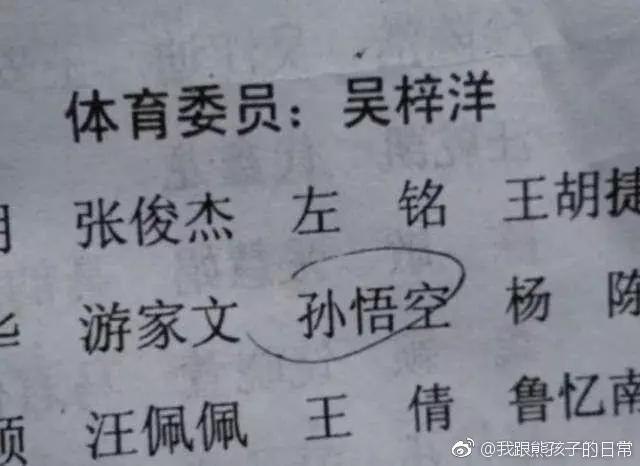 体育委员：吴梓洋
张俊杰 左 铭 王胡捷
游家文 孙悟空 杨 陈
汪佩佩 王 倩 鲁忆南
@我跟熊孩子的日常